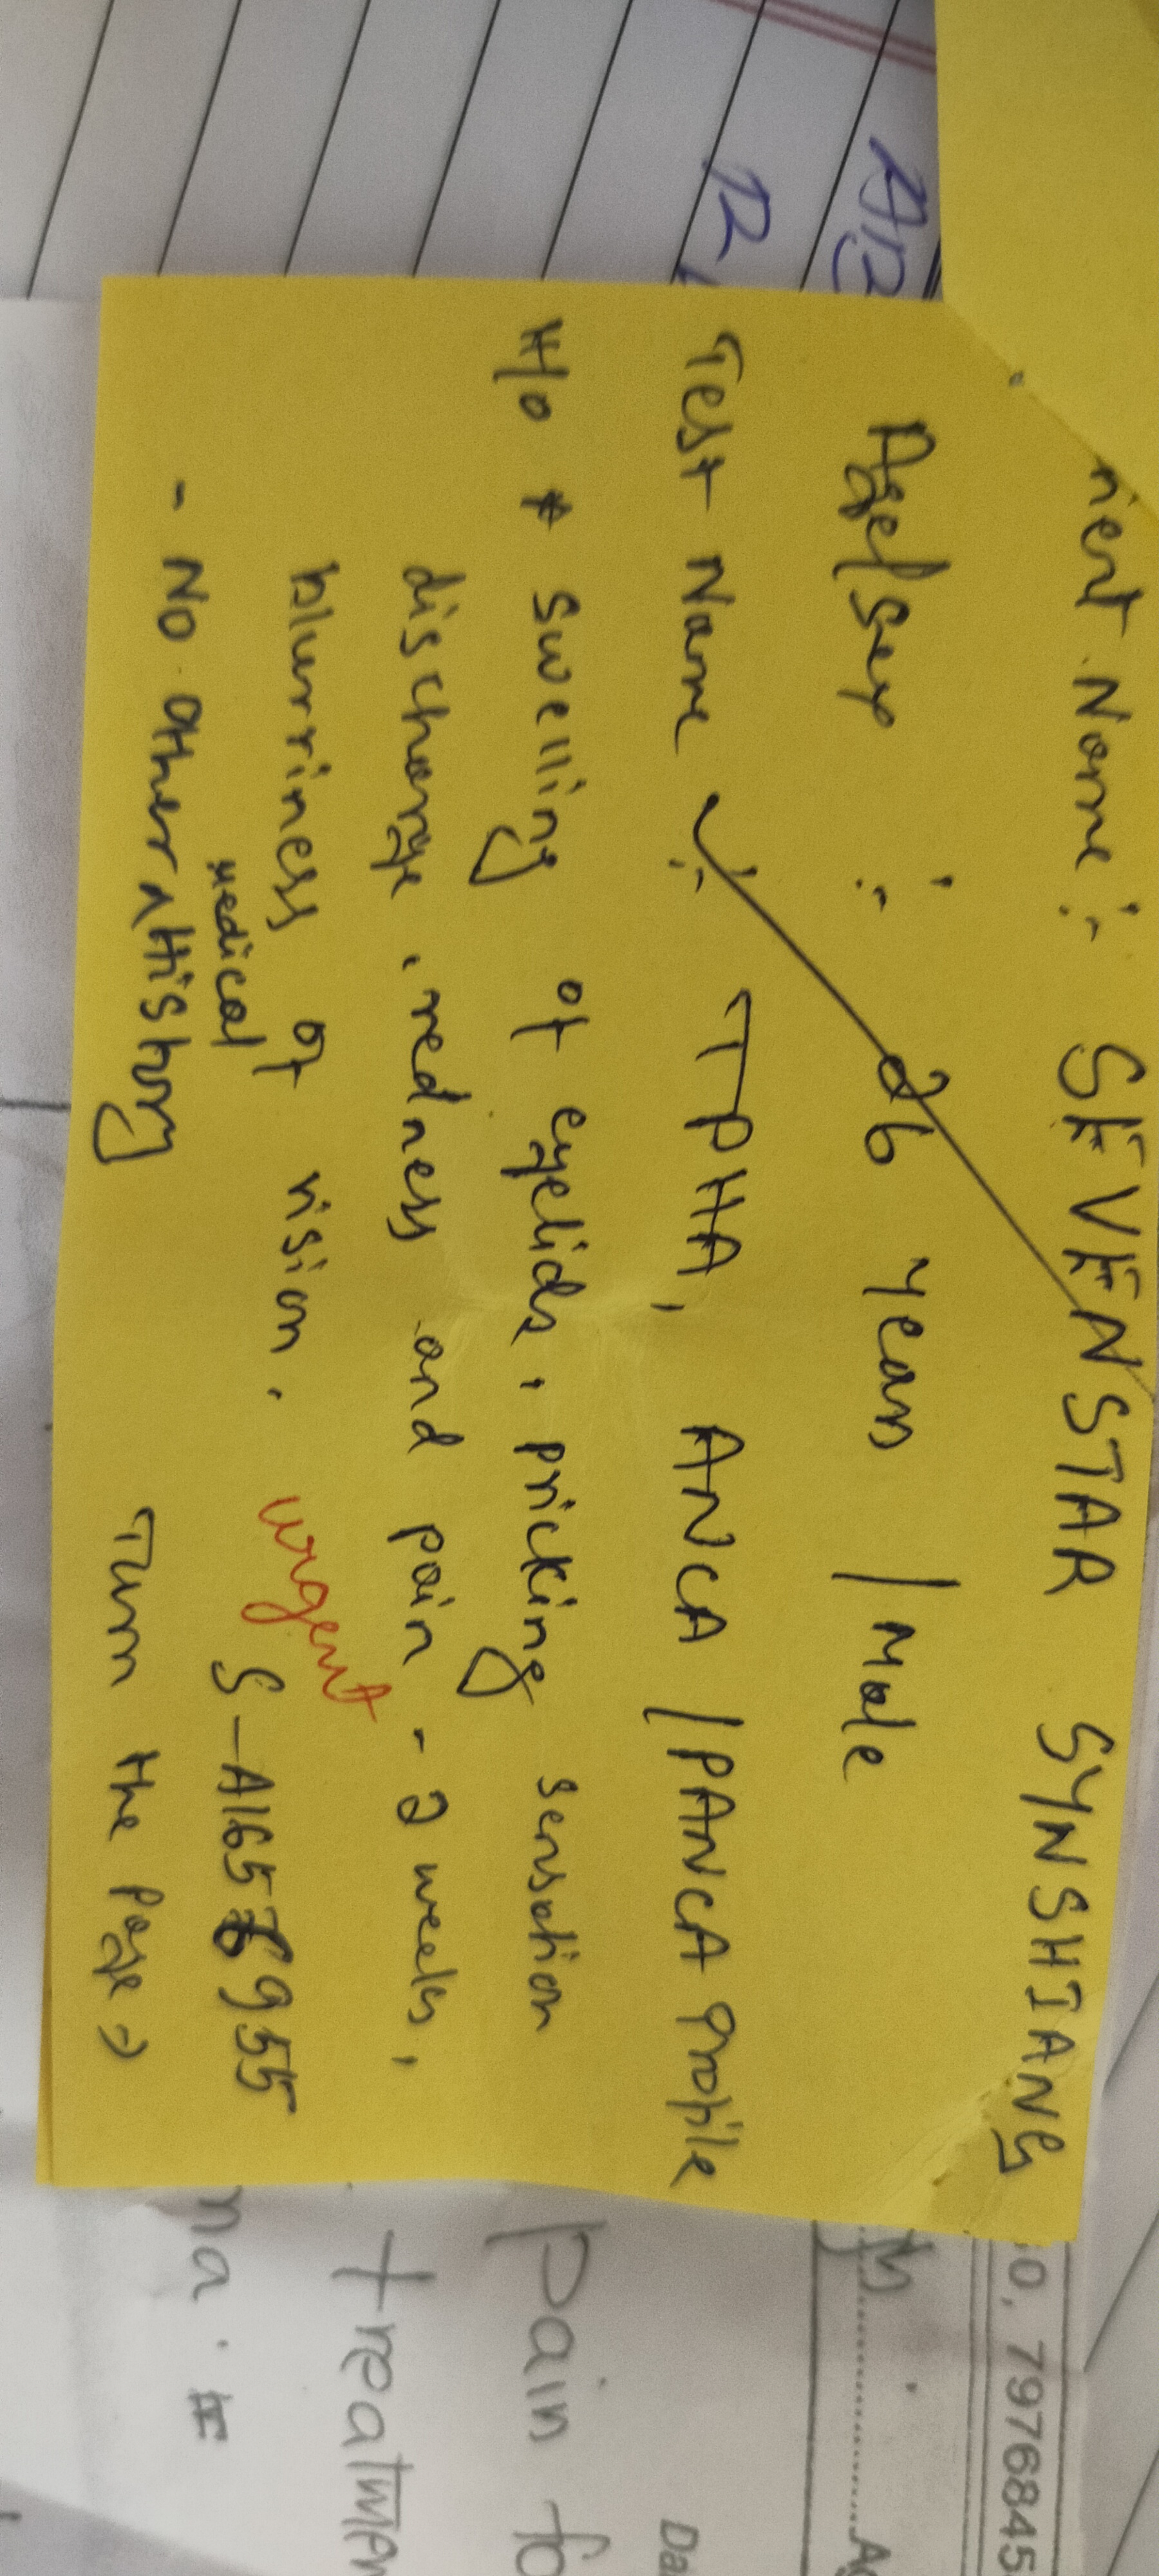 nent Name :- SEVENSTAR SYNSHIANG
Age/Sex :- 26 years / Male
Test Name :- TPHA, ANCA / PANCA Profile
H/o swelling of eyelids, pricking sensation
discharge, redness and pain - 2 weeks,
blurriness of vision.
urgent
Medical
- No other History
S-A1656955
Turn the Page →
10, 7976845
pain fo
treatmen
na.
Da